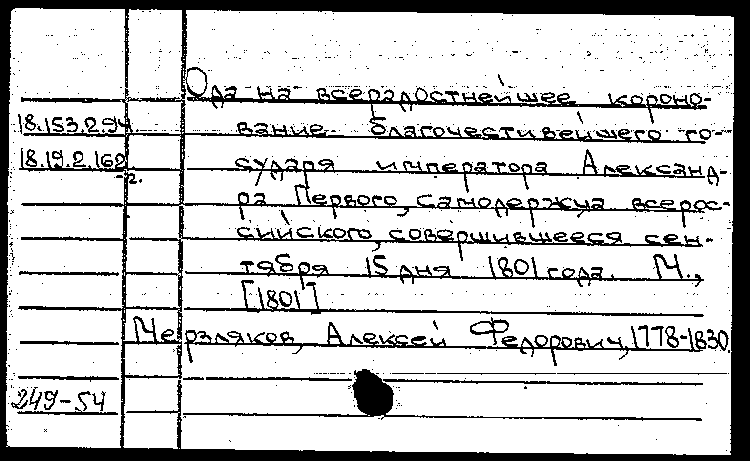 Ода на всерадостнейшее короно-
18.153.2.94 вание благочестивейшего го-
18.19.2.162 сударя императора Александ-
-2.
ра Первого, самодержца всерос-
сийского, совершившееся сен-
тября 15 дня 1801 года. М.,
[1801]
Мерзляков, Алексей Федорович, 1778-1830.
249-54